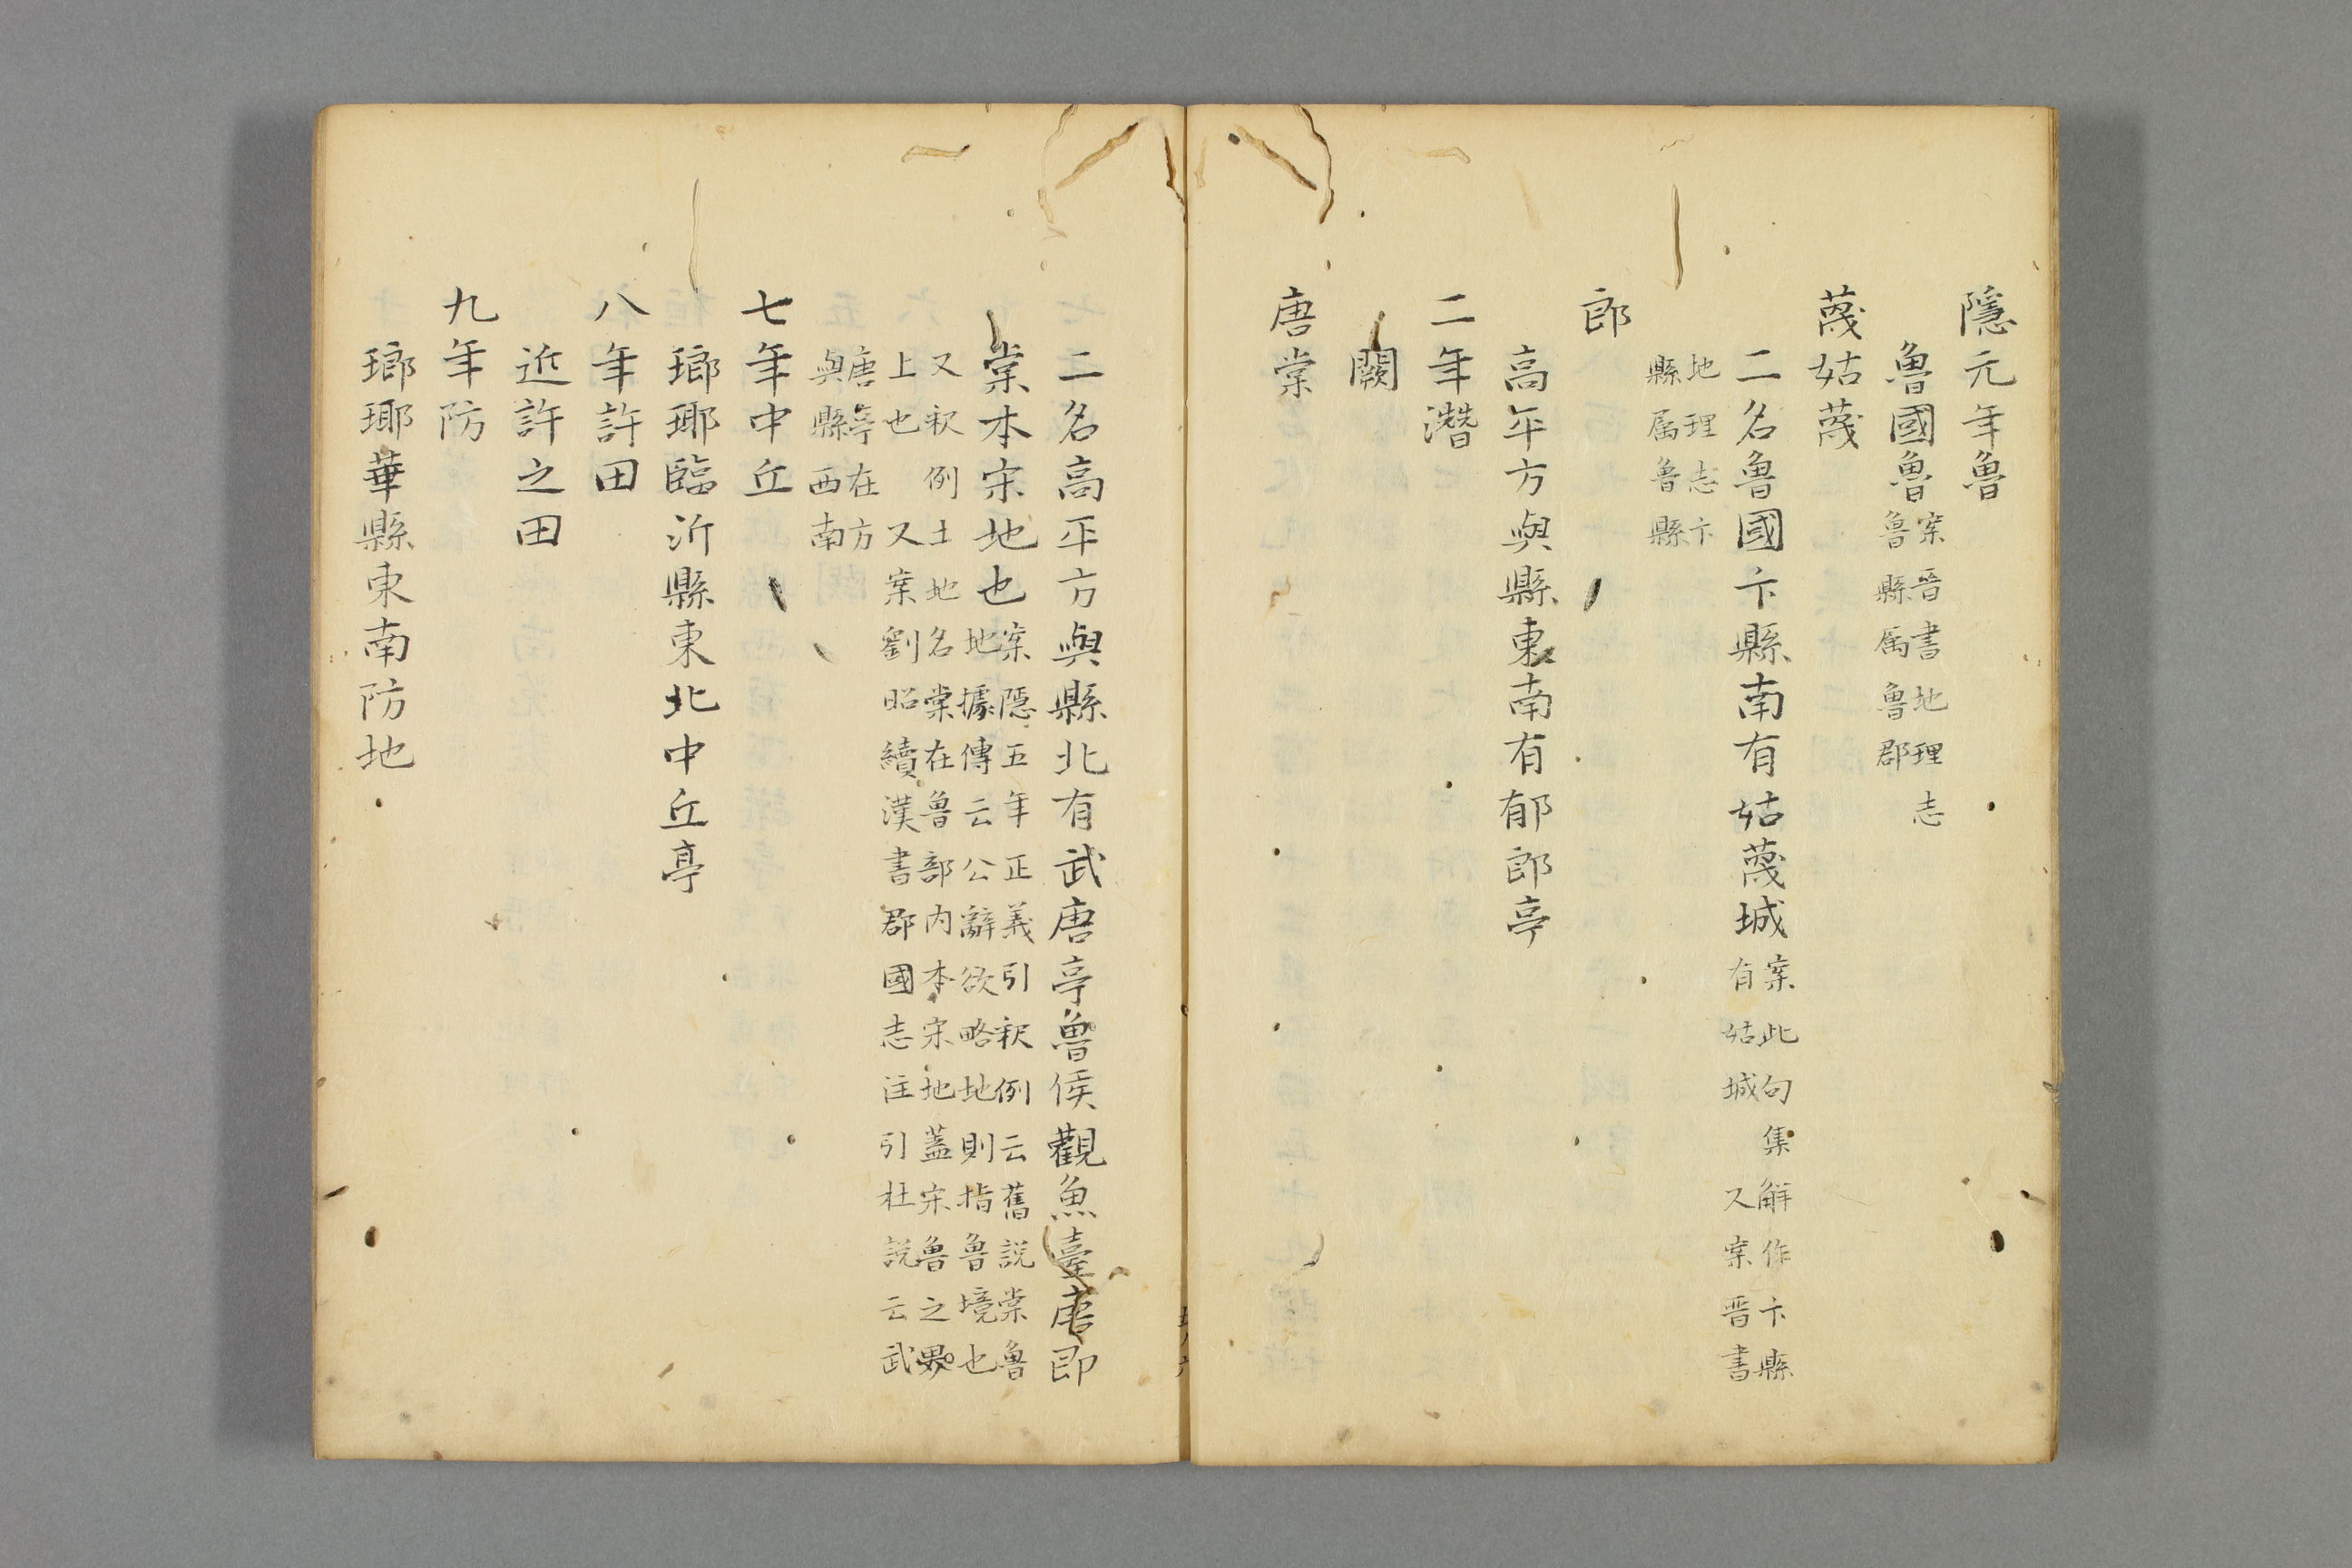 隱元年魯
魯國魯案晋書地理志
魯縣属魯郡
蔑姑蔑
二名魯國卞縣南有姑蔑城案此句集解作卞縣
有姑城 又案晋書
地理志卞
縣属魯縣
郎
高平方與縣東南有郁郎亭
二年潛
闕
唐棠
二名高平方與縣北有武唐亭魯侯觀魚臺唐即
棠本宋地也案隱五年正義引釈例云舊説棠魯
地據傳云公辭欲略地則指魯境也
又釈例土地名棠在魯部内本宋地蓋宋魯之界
上也 又案劉昭續漢書郡國志注引杜説云武
唐亭在方
與縣西南
七年中丘
瑯琊臨沂縣東北中丘亭
八年許田
近許之田
九年防
瑯琊華縣東南防地